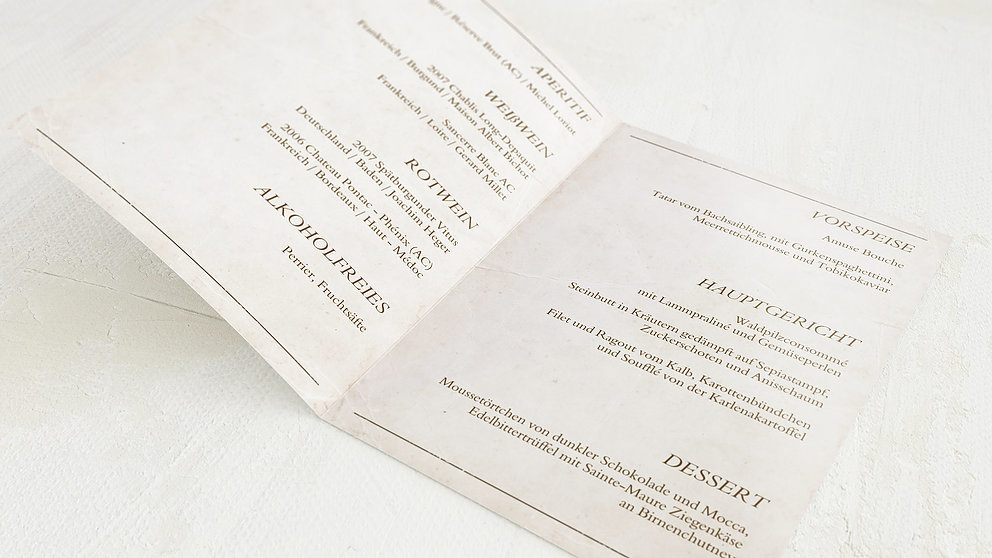 APERITIF
Réserve Brut (AC) / Michel Loriot
WEIßWEIN
2007 Chablis Long-Depaquit
Frankreich / Burgund / Maison Albert Bichot
Sancerre Blanc AC
Frankreich / Loire / Gerard Millet
ROTWEIN
2007 Spätburgunder Vitus
Deutschland / Baden / Joachim Heger
2006 Chateau Pontac - Phénix (AC)
Frankreich / Bordeaux / Haut - Médoc
ALKOHOLFREIES
Perrier, Fruchtsäfte
VORSPEISE
Amuse Bouche
Tatar vom Bachsaibling, mit Gurkenspaghettini,
Meerrettichmousse und Tobikokaviar
HAUPTGERICHT
Waldpilzconsommé
mit Lammpraliné und Gemüseperlen
Steinbutt in Kräutern gedämpft auf Sepiastampf,
Zuckerschoten und Anisschaum
Filet und Ragout vom Kalb, Karottenbündchen
und Soufflé von der Karlenakartoffel
DESSERT
Moussetörtchen von dunkler Schokolade und Mocca,
Edelbittertrüffel mit Sainte-Maure Ziegenkäse
an Birnenchutney